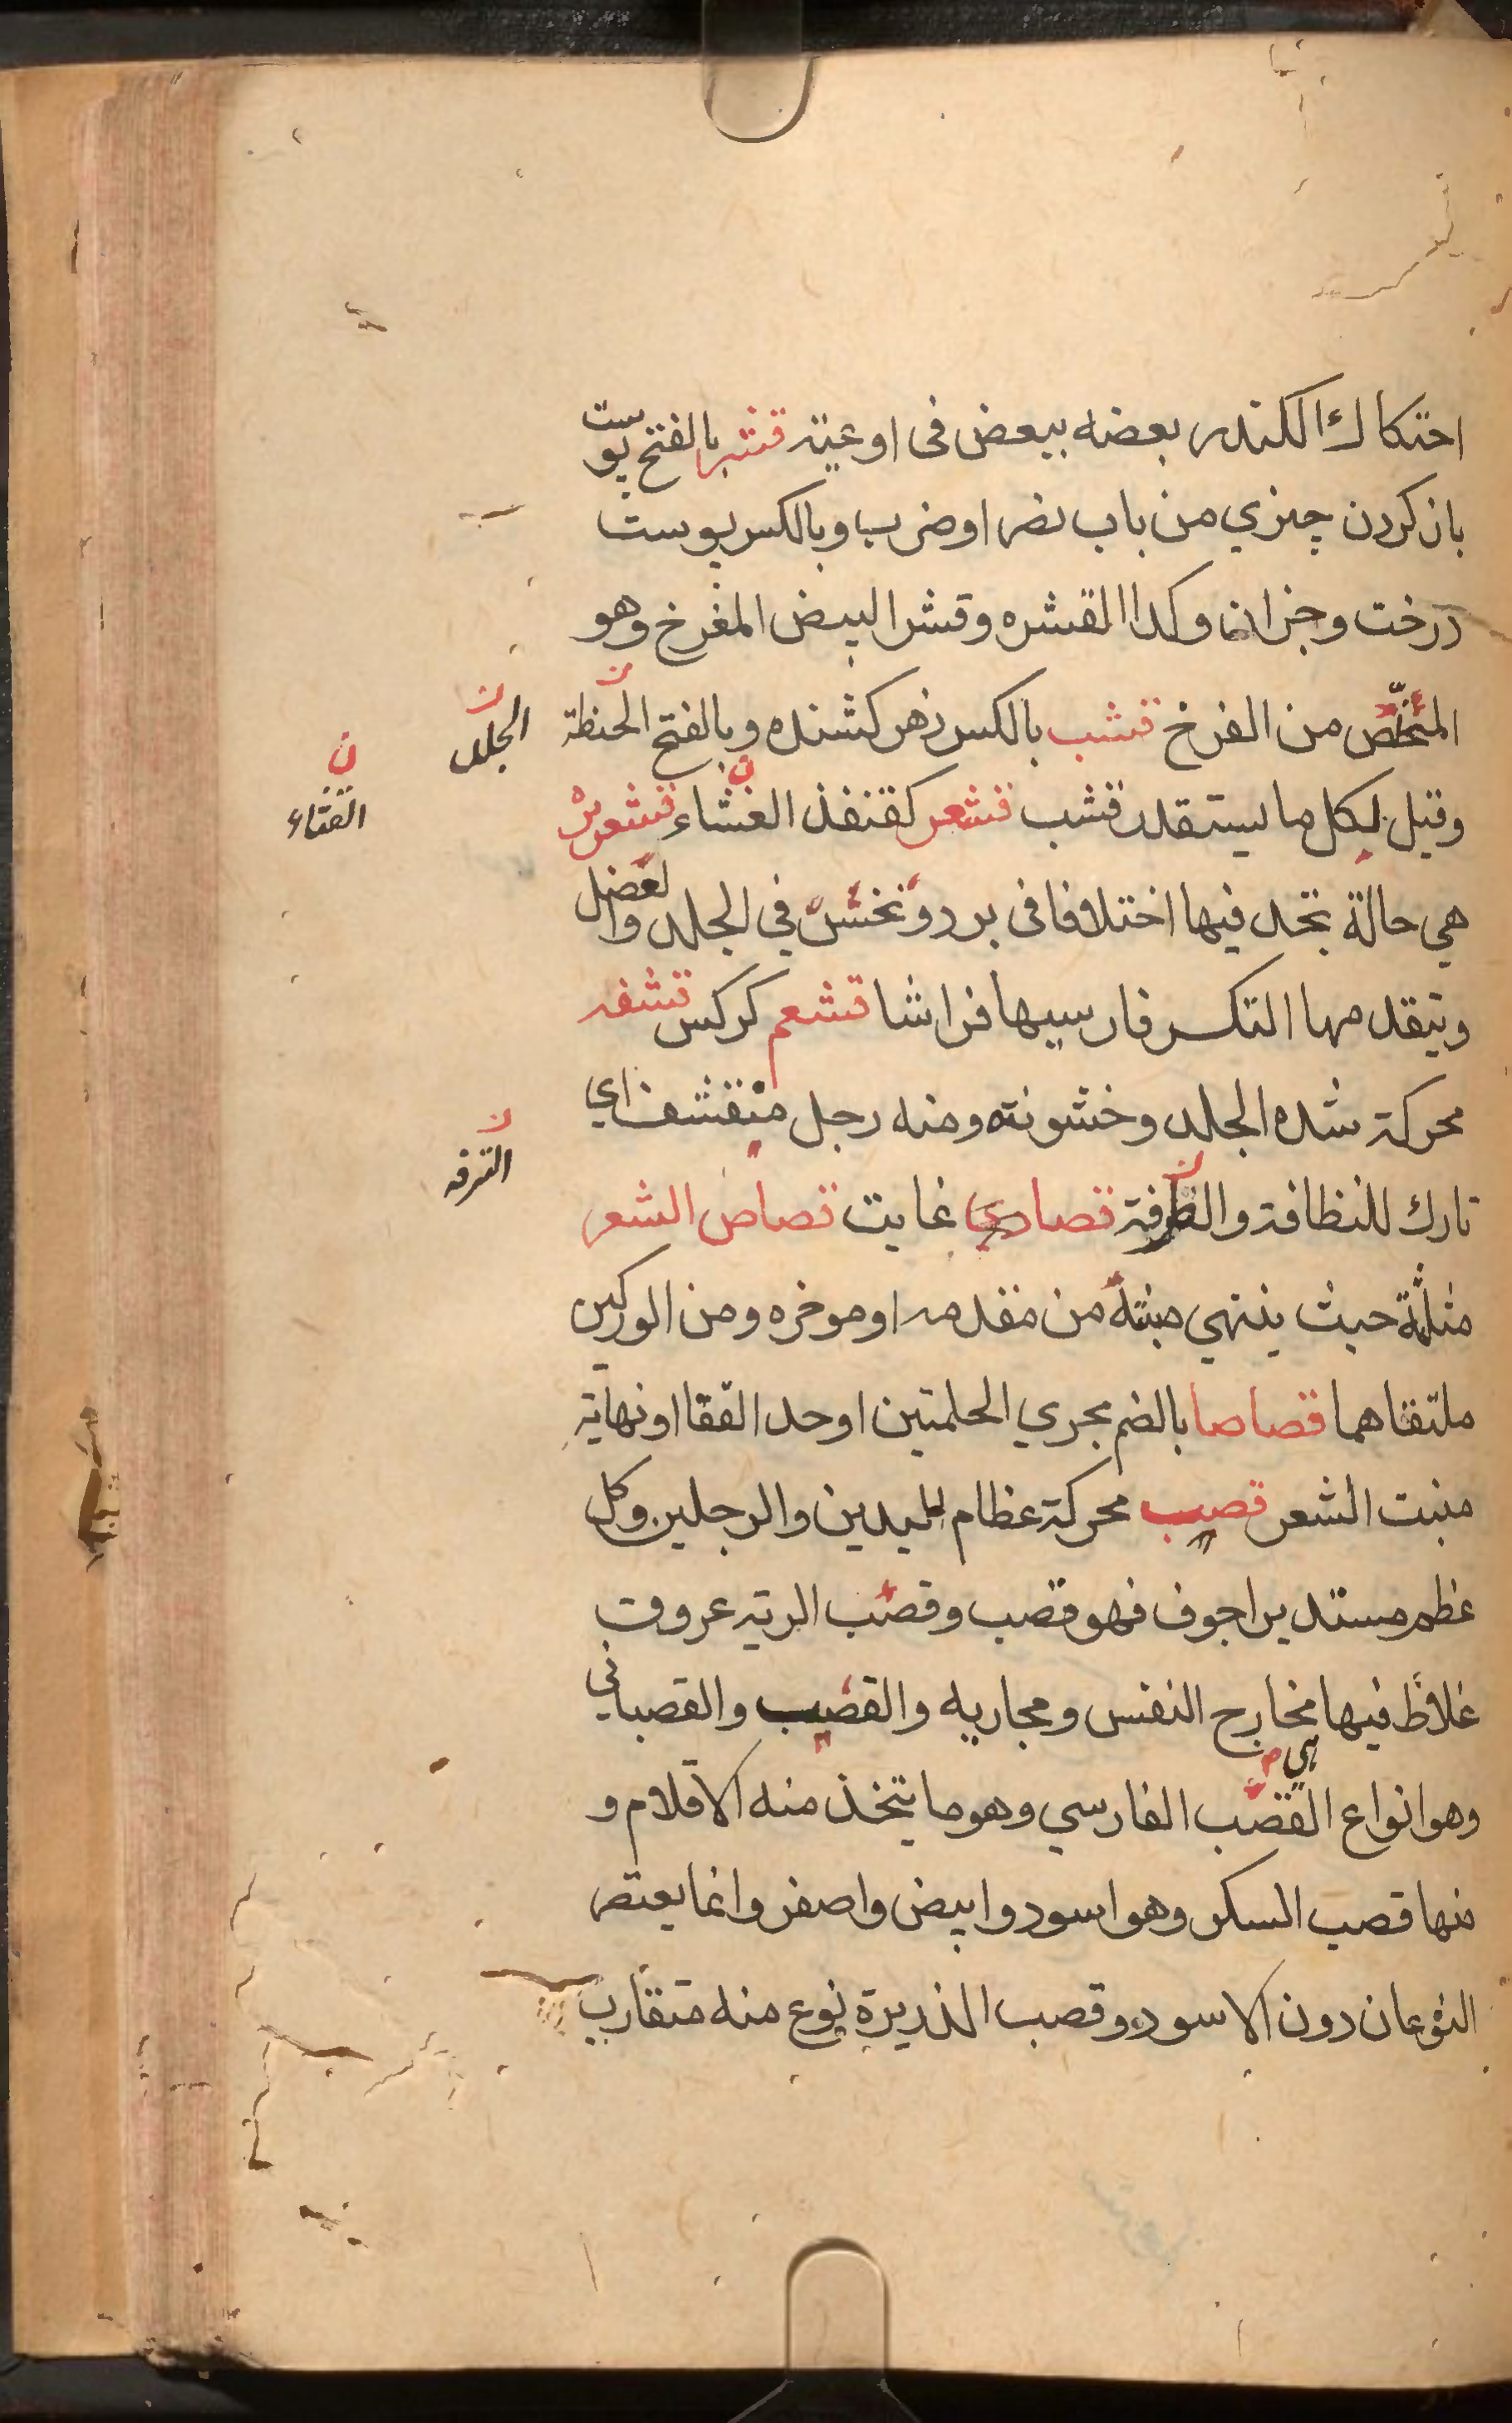 احتكاك الكندر بعضه ببعض فى اوعيته قشر بالفتح پوست
باز كردن چيزي من باب نصر اوضرب وبالكسر پوست
درخت وجزان وكذا القشره وقشر البيض المفرخ وهو
المتخلّص من الفرخ قشب بالكسر زهر كشنده وبالفتح الحنظة
الجلد
وقيل لكل ما يستقذر قشب قشعر كقنفذ الغشاء قشعرير
القثاء
هي حالة تجد فيها اختلافا فى برد ونخس في الجلد والعضل
ويتقدمها التكسر فارسيها فراشا قشعم كركس قشفه
محركة شده الجلد وخشونته ومنه رجل متقشف اي
تارك للنظافة والطرفة قصادي غايت قصاص الشعر
الترفه
مثلثة حيث ينتهي منبته من مقدمه اوموخره ومن الوركين
ملتقاهما قصاصا بالضم مجري الحلمتين اوحد القفا اونهاية
منبت الشعر قصب محركة عظام اليدين والرجلين وكل
عظم مستدير اجوف فهو قصب وقصب الرية عروق
غلاظ فيها مخارج النفس ومجاريه والقصب والقصباني
وهو انواع القصب الفارسي وهو ما يتخذ منه الاقلام و
منها قصب السكر وهو اسود وابيض واصفر وانما يعتصر
النوعان دون الاسود وقصب الذريرة نوع منه متقارب